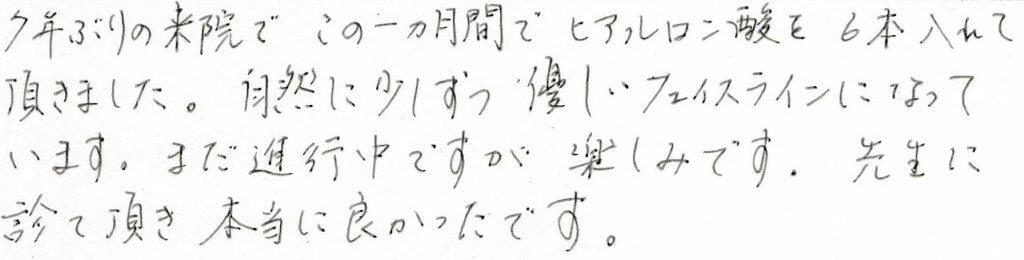 7年ぶりの来院で この一カ月間で ヒアルロン酸を 6本入れて
頂きました。 自然に少しずつ 優しいフェイスラインになって
います。まだ進行中ですが 楽しみです。 先生に
診て頂き 本当に良かったです。